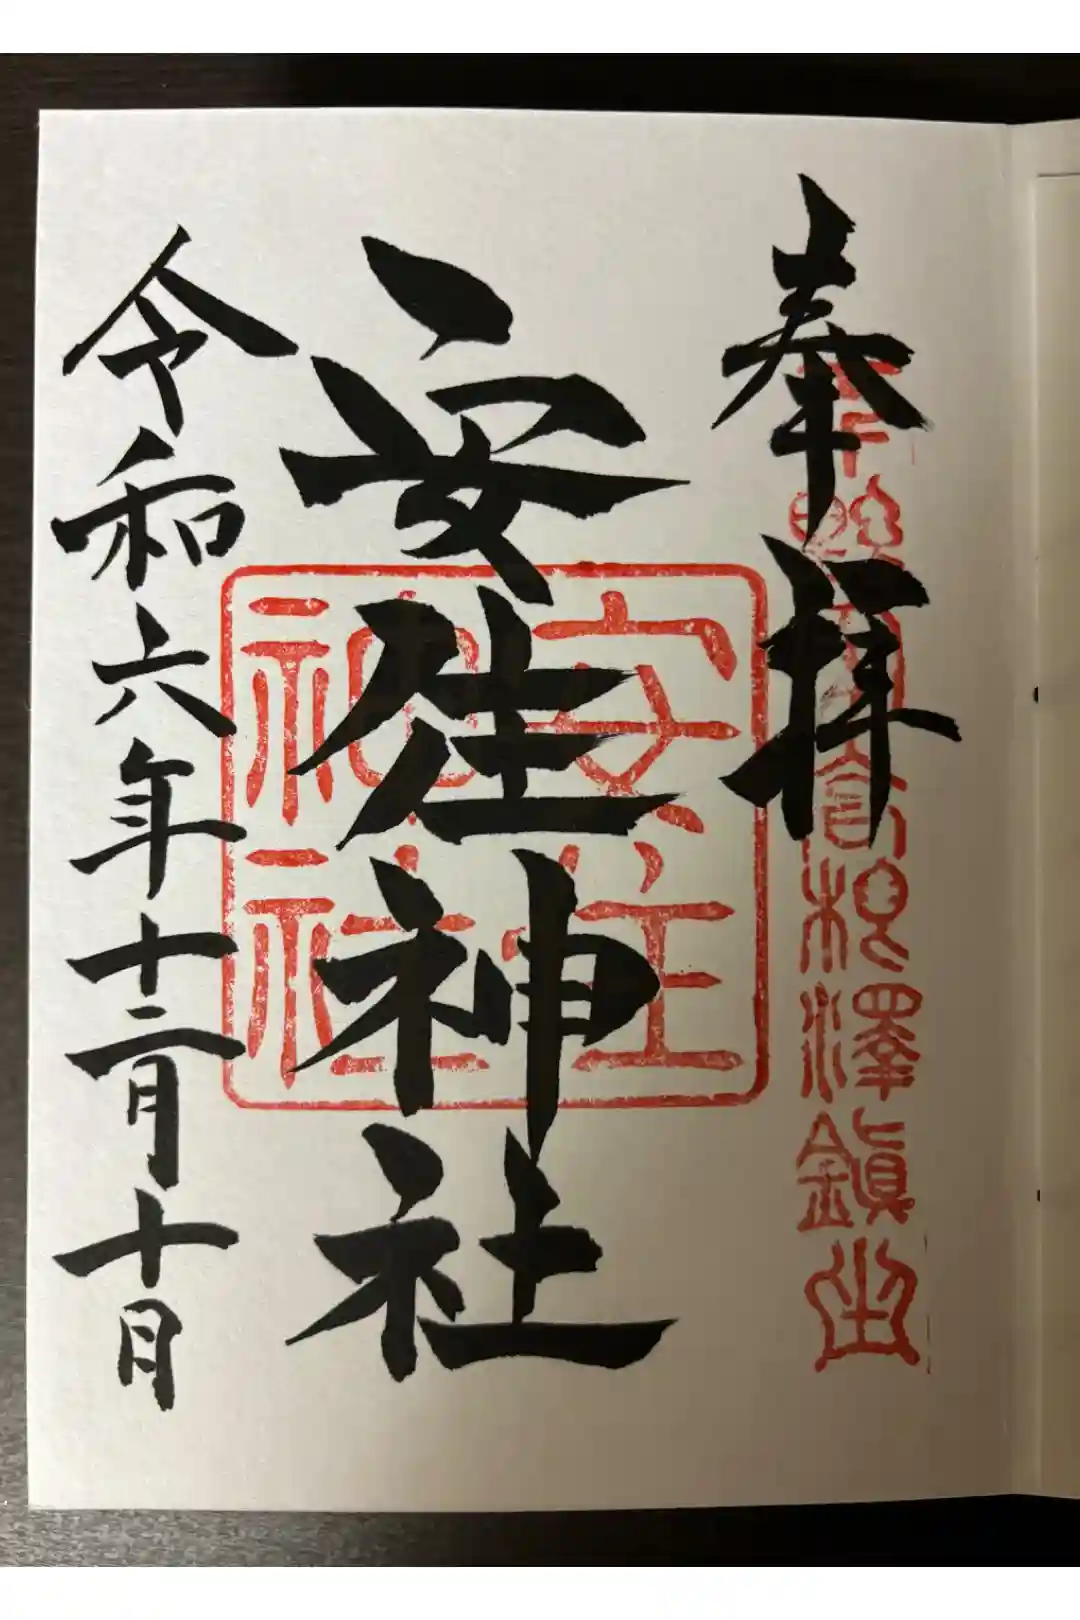 奉拝
高根澤鎭坐
安住神社
安住
神社
令和六年十二月十日